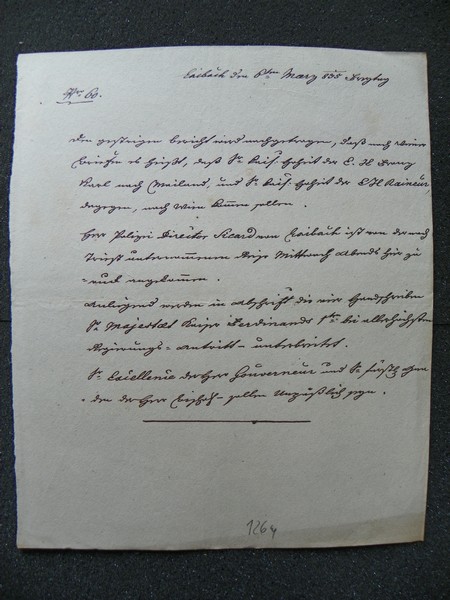 Laibach den 6ten Marz 835 Freytag
Nro 60.
Dem gestrigen bericht wird nachgetragen, daß nach Wiener
briefen es heißt, daß Sr Kais. Hoheit der E. H. Franz
Karl nach Mailand, und Sr Kais. Hoheit der E H Rainer,
dagegen, nach Wien komen sollen.
Herr Polizei Director Sicard von Laibach ist von der nach
Triest unternommenen Reise Mittwoch Abends hier zu
=ruck angekommen.
Anliegend werden in Abschrift die vier Handschreiben
Sr Majestät Kaiser Ferdinands 1ten bei allerhöchsten
Regierungs=Antritt=unterbreitet.
Sr Excellenz der Herr Gouverneur und Sr fürstl.
der Herr Bischof=sollen Unpäßlich seyn.
126